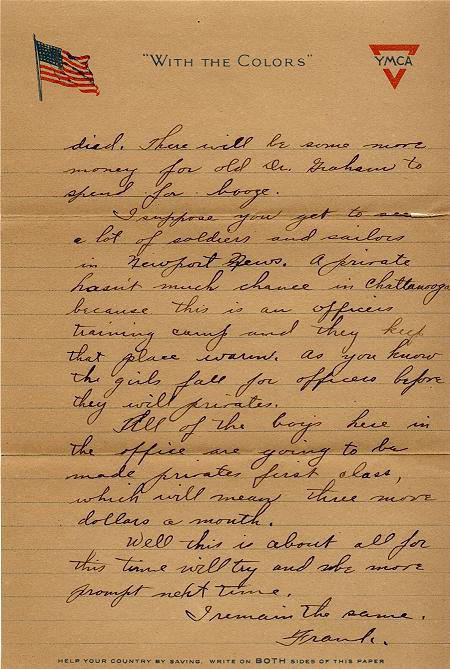 "WITH THE COLORS"
YMCA
died. There will be some more
money for old Dr. Graham to
spend for booze.
I suppose you get to see
a lot of soldiers and sailors
in Newport News. A private
hasn't much chance in Chattanooga
because this is an officers
training camp and they keep
that place warm. As you know
the girls fall for officers before
they will privates.
All of the boys here in
the office are going to be
made privates first class,
which will mean three more
dollars a month.
Well this is about all for
this time will try and be more
prompt next time.
I remain the same.
Frank.
HELP YOUR COUNTRY BY SAVING. WRITE ON BOTH SIDES OF THIS PAPER